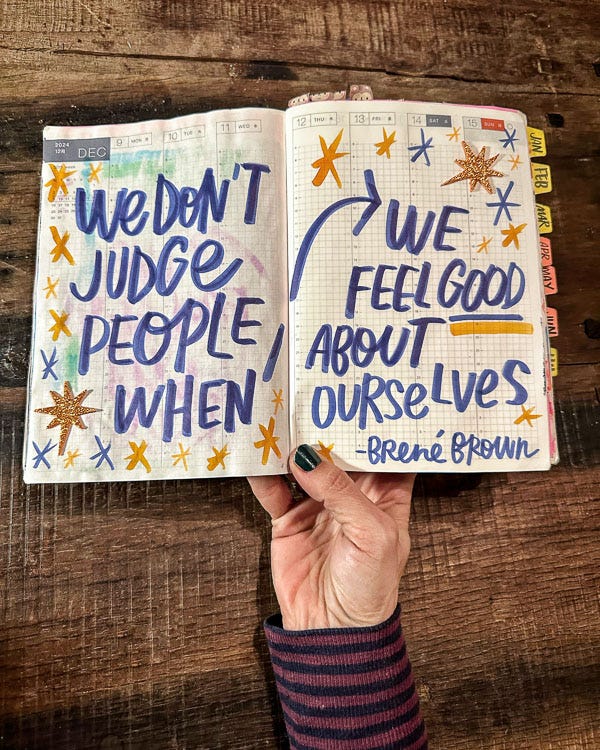 2024
12月 DEC
9 MON
10 TUE
11 WED
We DON'T
JUDGe
PEOPLE
WHEN
12 THU
13 FRI
14 SAT
15 SUN
WE
FEEL GOOD
ABOUT
OURSeLVeS
-BRené BROWN
JAN
FEB
MAR
APR
MAY
JUN